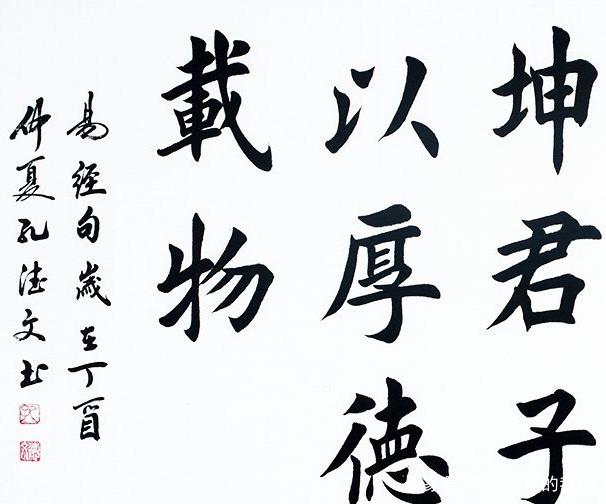 坤君子
以厚德
載物
易经句歲在丁酉
仲夏孔德文书